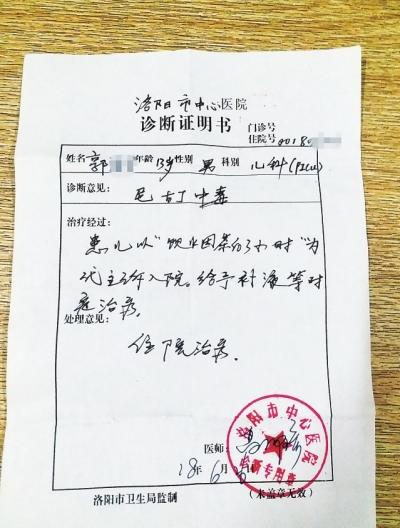 洛阳市中心医院
诊断证明书
门诊号
住院号 00180
姓名 郭 年龄 13岁 性别 男 科别 儿科(PICU)
诊断意见:
尼古丁中毒
治疗经过:
患儿以"饮 时"为
入院。给予补液等对
症治疗。
处理意见:
住院治疗。
医师:
18年 6
洛阳市中心医院
诊断专用章
洛阳市卫生局监制
(未盖章无效)